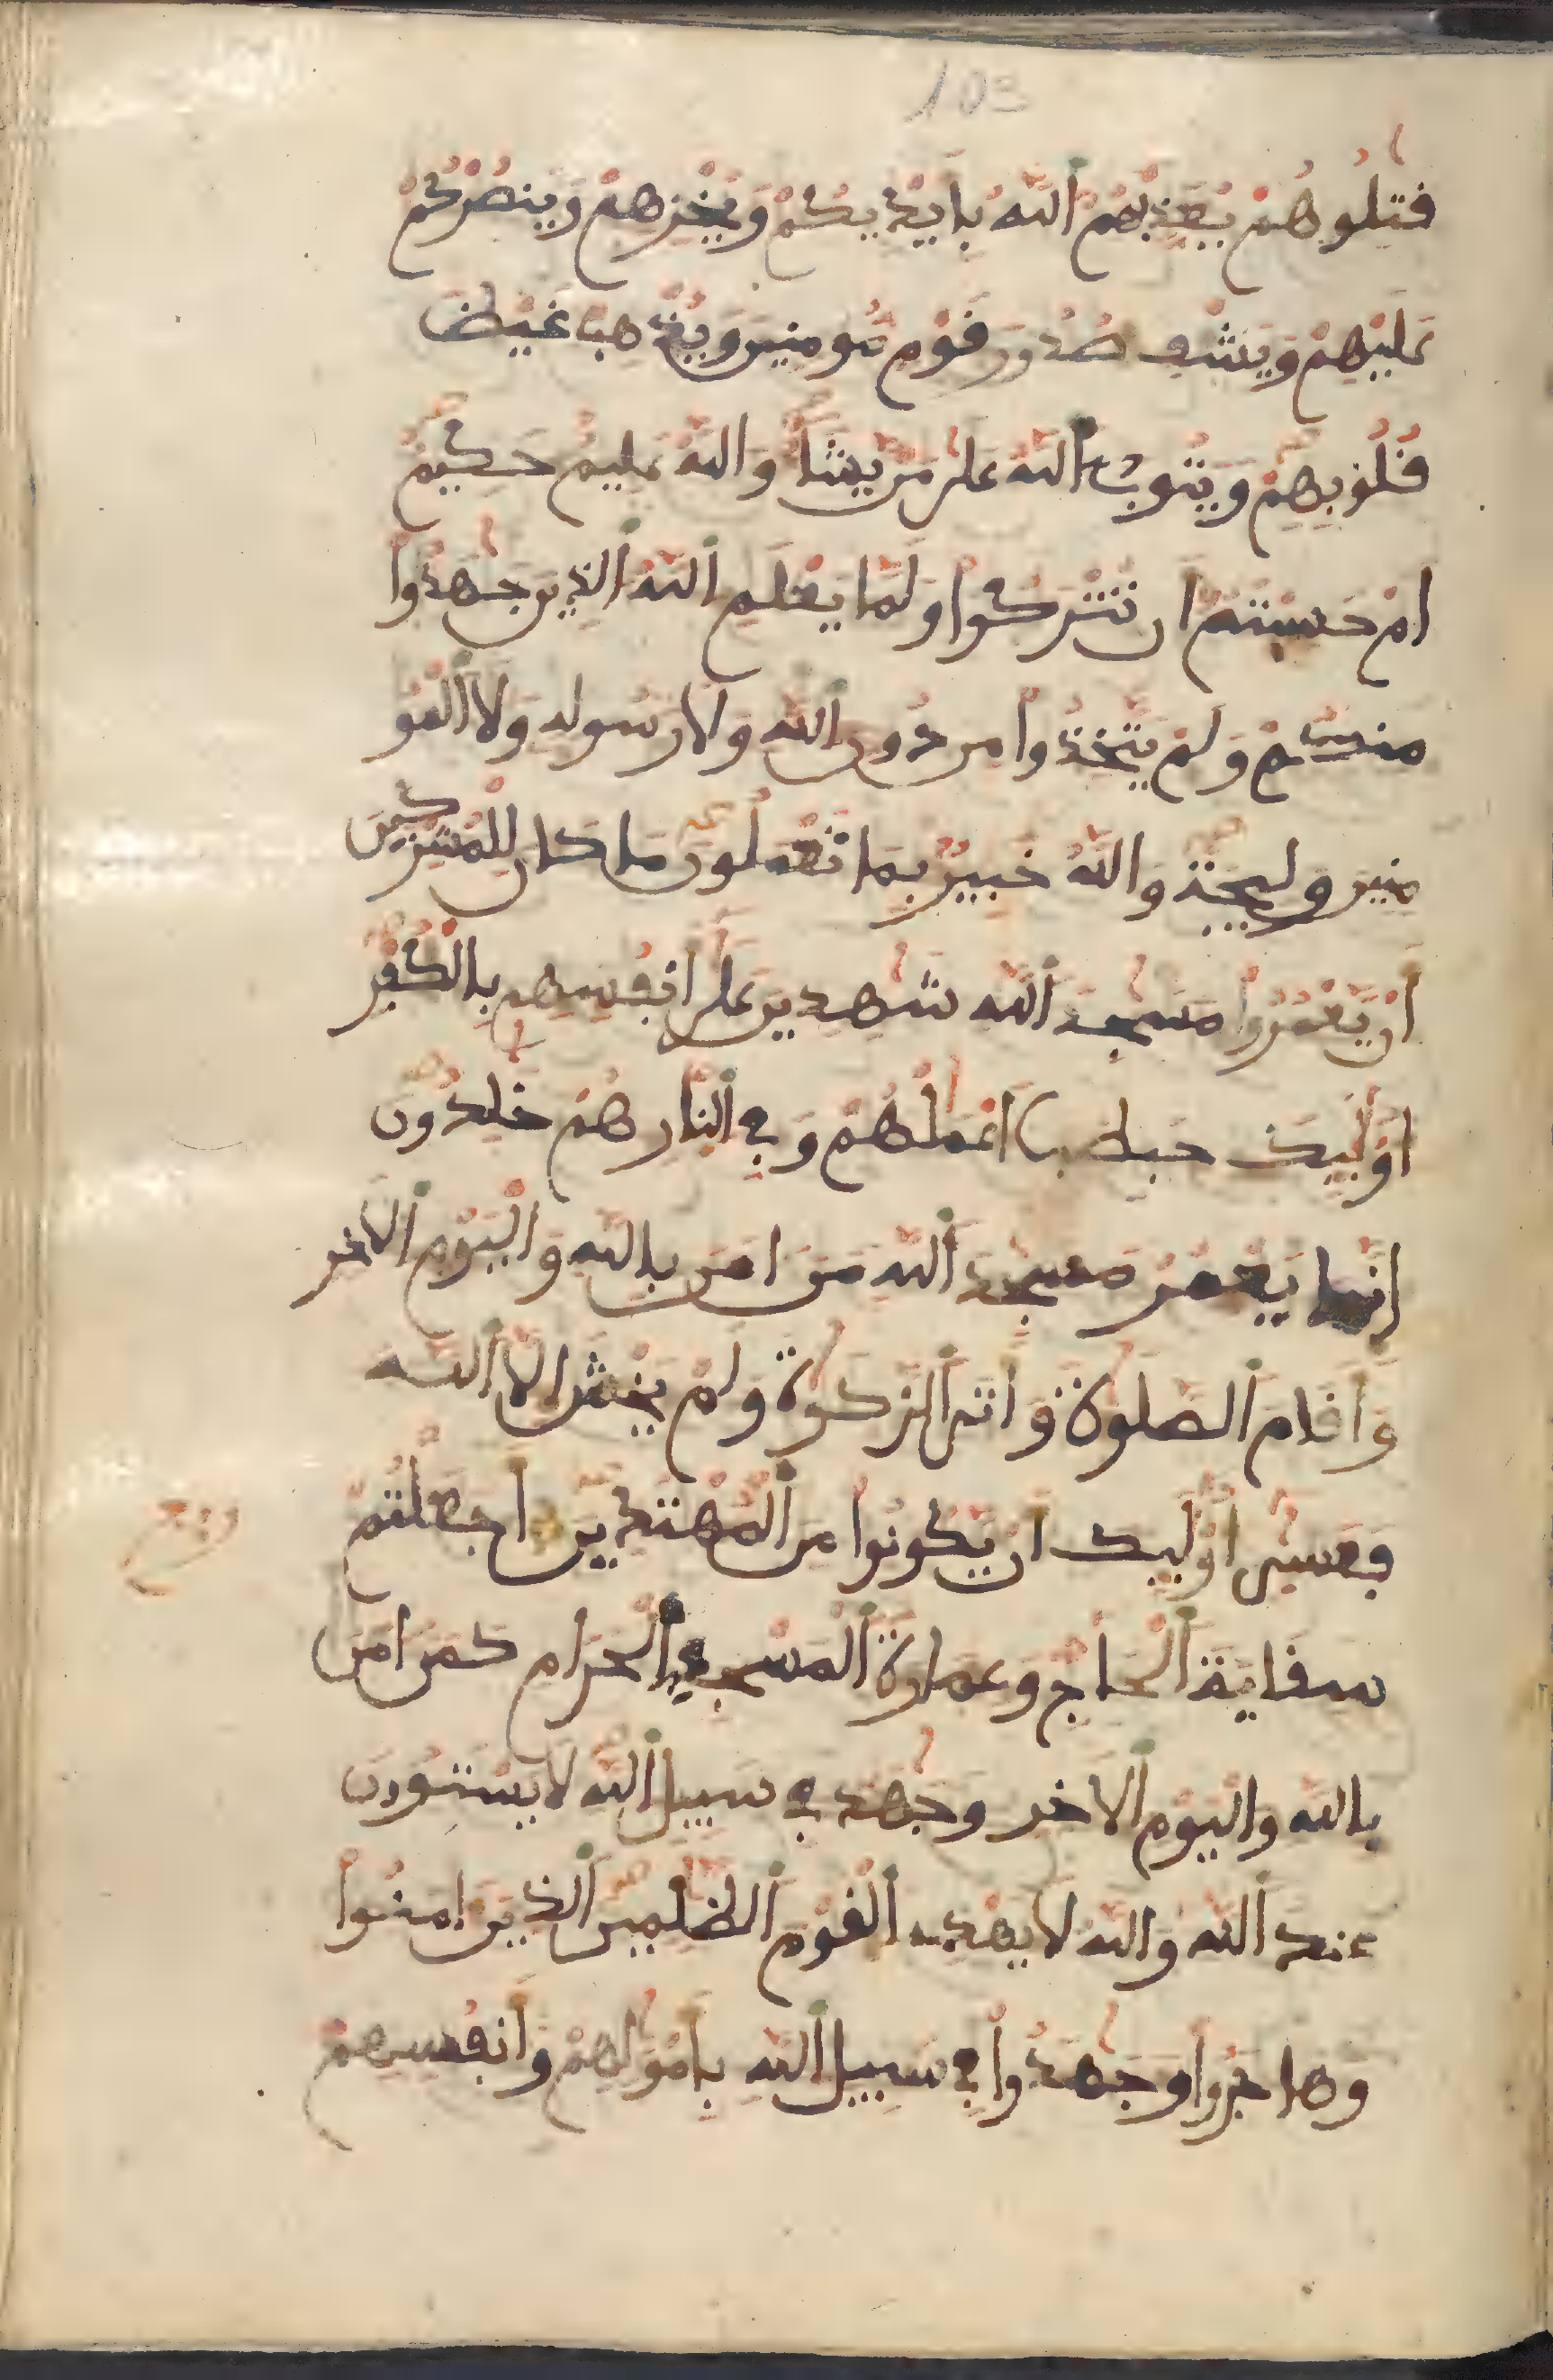 103
قتلوهم يعذبهم الله بايديكم ويخزهم وينصركم
عليهم ويشف صدور قوم مومنين ويذهب غيظ
قلوبهم ويتوب الله على من يشا والله عليم حكيم
ام حسبتم ان تتركوا ولما يعلم الله الذين جهدوا
منكم ولم يتخذوا من دون الله ولا رسوله ولا المو
منين وليجة والله خبير بما تعملون ما كان للمشركين
ان يعمروا مسجد الله شهدين على انفسهم بالكفر
اوليك حبطت اعملهم وفي النار هم خلدون
انما يعمر مسجد الله من امن بالله واليوم الاخر
واقام الصلوة واتى الزكوة ولم يخش الا الله
فعسى اوليك ان يكونوا من المهتدين اجعلتم
سقاية الحاج وعمارة المسجد الحرام كمن امن
بالله واليوم الاخر وجهد في سبيل الله لا يستون
عند الله والله لا يهدي القوم الظلمين الذين امنوا
وهاجروا وجهدوا في سبيل الله بامولهم وانفسهم